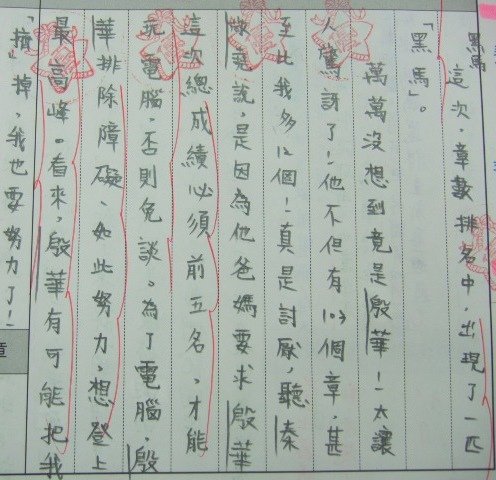 黑馬
這次，章數排名中，出現了一匹
「黑馬」。
萬萬沒想到竟是殷華！太讓
人驚訝了！他不但有103個章，甚
至比我多12個！真是討厭，聽秦
說，是因為他爸媽要求殷華
這次總成績必須前五名，才能
玩電腦，否則免談。為了電腦，殷
華排除障礙、如此努力，想登上
最高峰。看來，殷華有可能把我
「擠」掉，我也要努力了！
章